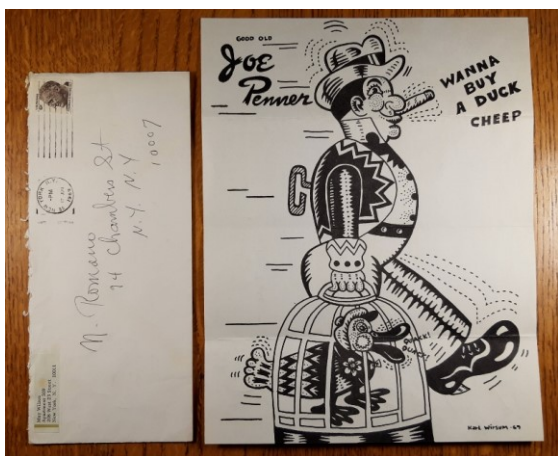 M. Romano
94 Chambers St
N.Y. N.Y
10007
GOOD OLD
JOE
Penner
WANNA
BUY
A DUCK
CHEEP
QUACK!
QUACK!
KARL WIRSUM - 69